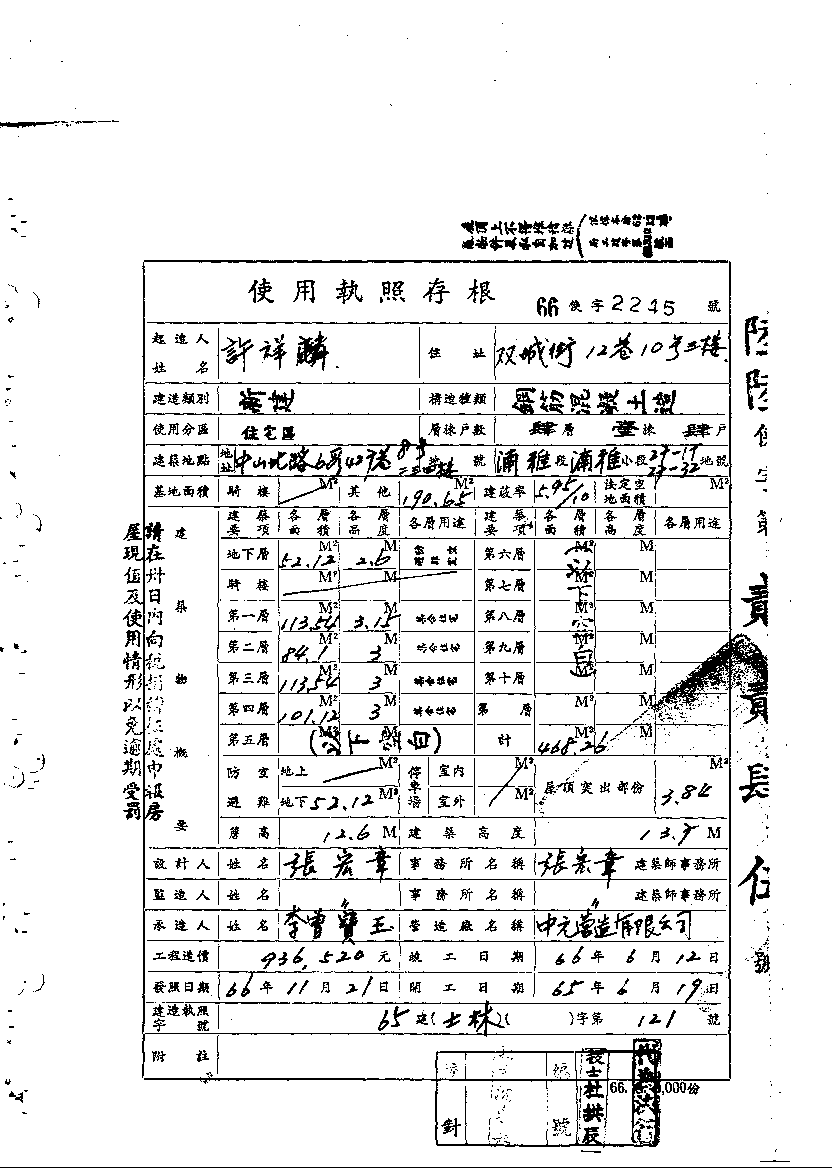 使用執照存根
66 使字 2245 號
起造人姓名 許祥麟 住址 双城街12巷10号三樓
建造類別 新建 構造種類 鋼筋混凝土造
使用分區 住宅區 層棟戶數 肆層 壹棟 肆戶
建築地點 地址 中山北路6段427巷 號 浦雅段浦雅小段 地號
基地面積 騎樓 M² 其他 190.65 M² 建蔽率 5.95/10 法定空地面積 M²
建築概要
建築要項 各層面積 各層高度 各層用途 建築要項 各層面積 各層高度 各層用途
地下層 52.12 M² 2.6 M 第六層 M² M
騎樓 M² M 第七層 M² M
第一層 113.54 M² 3.15 M 集合住宅 第八層 M² M
第二層 84.1 M² 3 M 集合住宅 第九層 M² M
第三層 113.54 M² 3 M 集合住宅 第十層 M² M
第四層 101.12 M² 3 M 集合住宅 第 層 M² M
(以下空白)
第五層 M² M (以下空白) 計 468.26 M²
防空避難 地上 M² 停車場 室內 M² 屋頂突出部份 3.84 M²
地下 52.12 M² 室外 M²
簷高 12.6 M 建築高度 13.5 M
設計人 姓名 張宏章 事務所名稱 張宏章 建築師事務所
監造人 姓名 〃 事務所名稱 〃 建築師事務所
承造人 姓名 李曾寶玉 營造廠名稱 中元營造有限公司
工程造價 936,520 元 竣工日期 66年6月12日
發照日期 66年11月21日 開工日期 65年6月19日
建造執照字號 65建(士林)( )字第 121 號
附註
請在卅日內向稅捐稽征處申報房
屋現值及使用情形以免逾期受罰
陸陸使字第貳貳肆伍號
技士杜拱辰
校對
號
66. ,000份